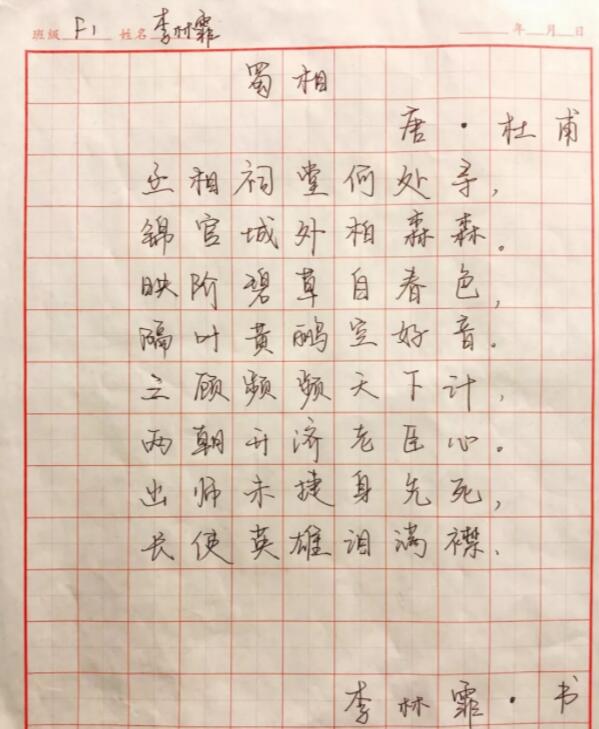 班级 F1 姓名 李林霏 年 月 日
蜀相
唐·杜甫
丞相祠堂何处寻,
锦官城外柏森森。
映阶碧草自春色,
隔叶黄鹂空好音。
三顾频频天下计,
两朝开济老臣心。
出师未捷身先死,
长使英雄泪满襟。
李林霏·书